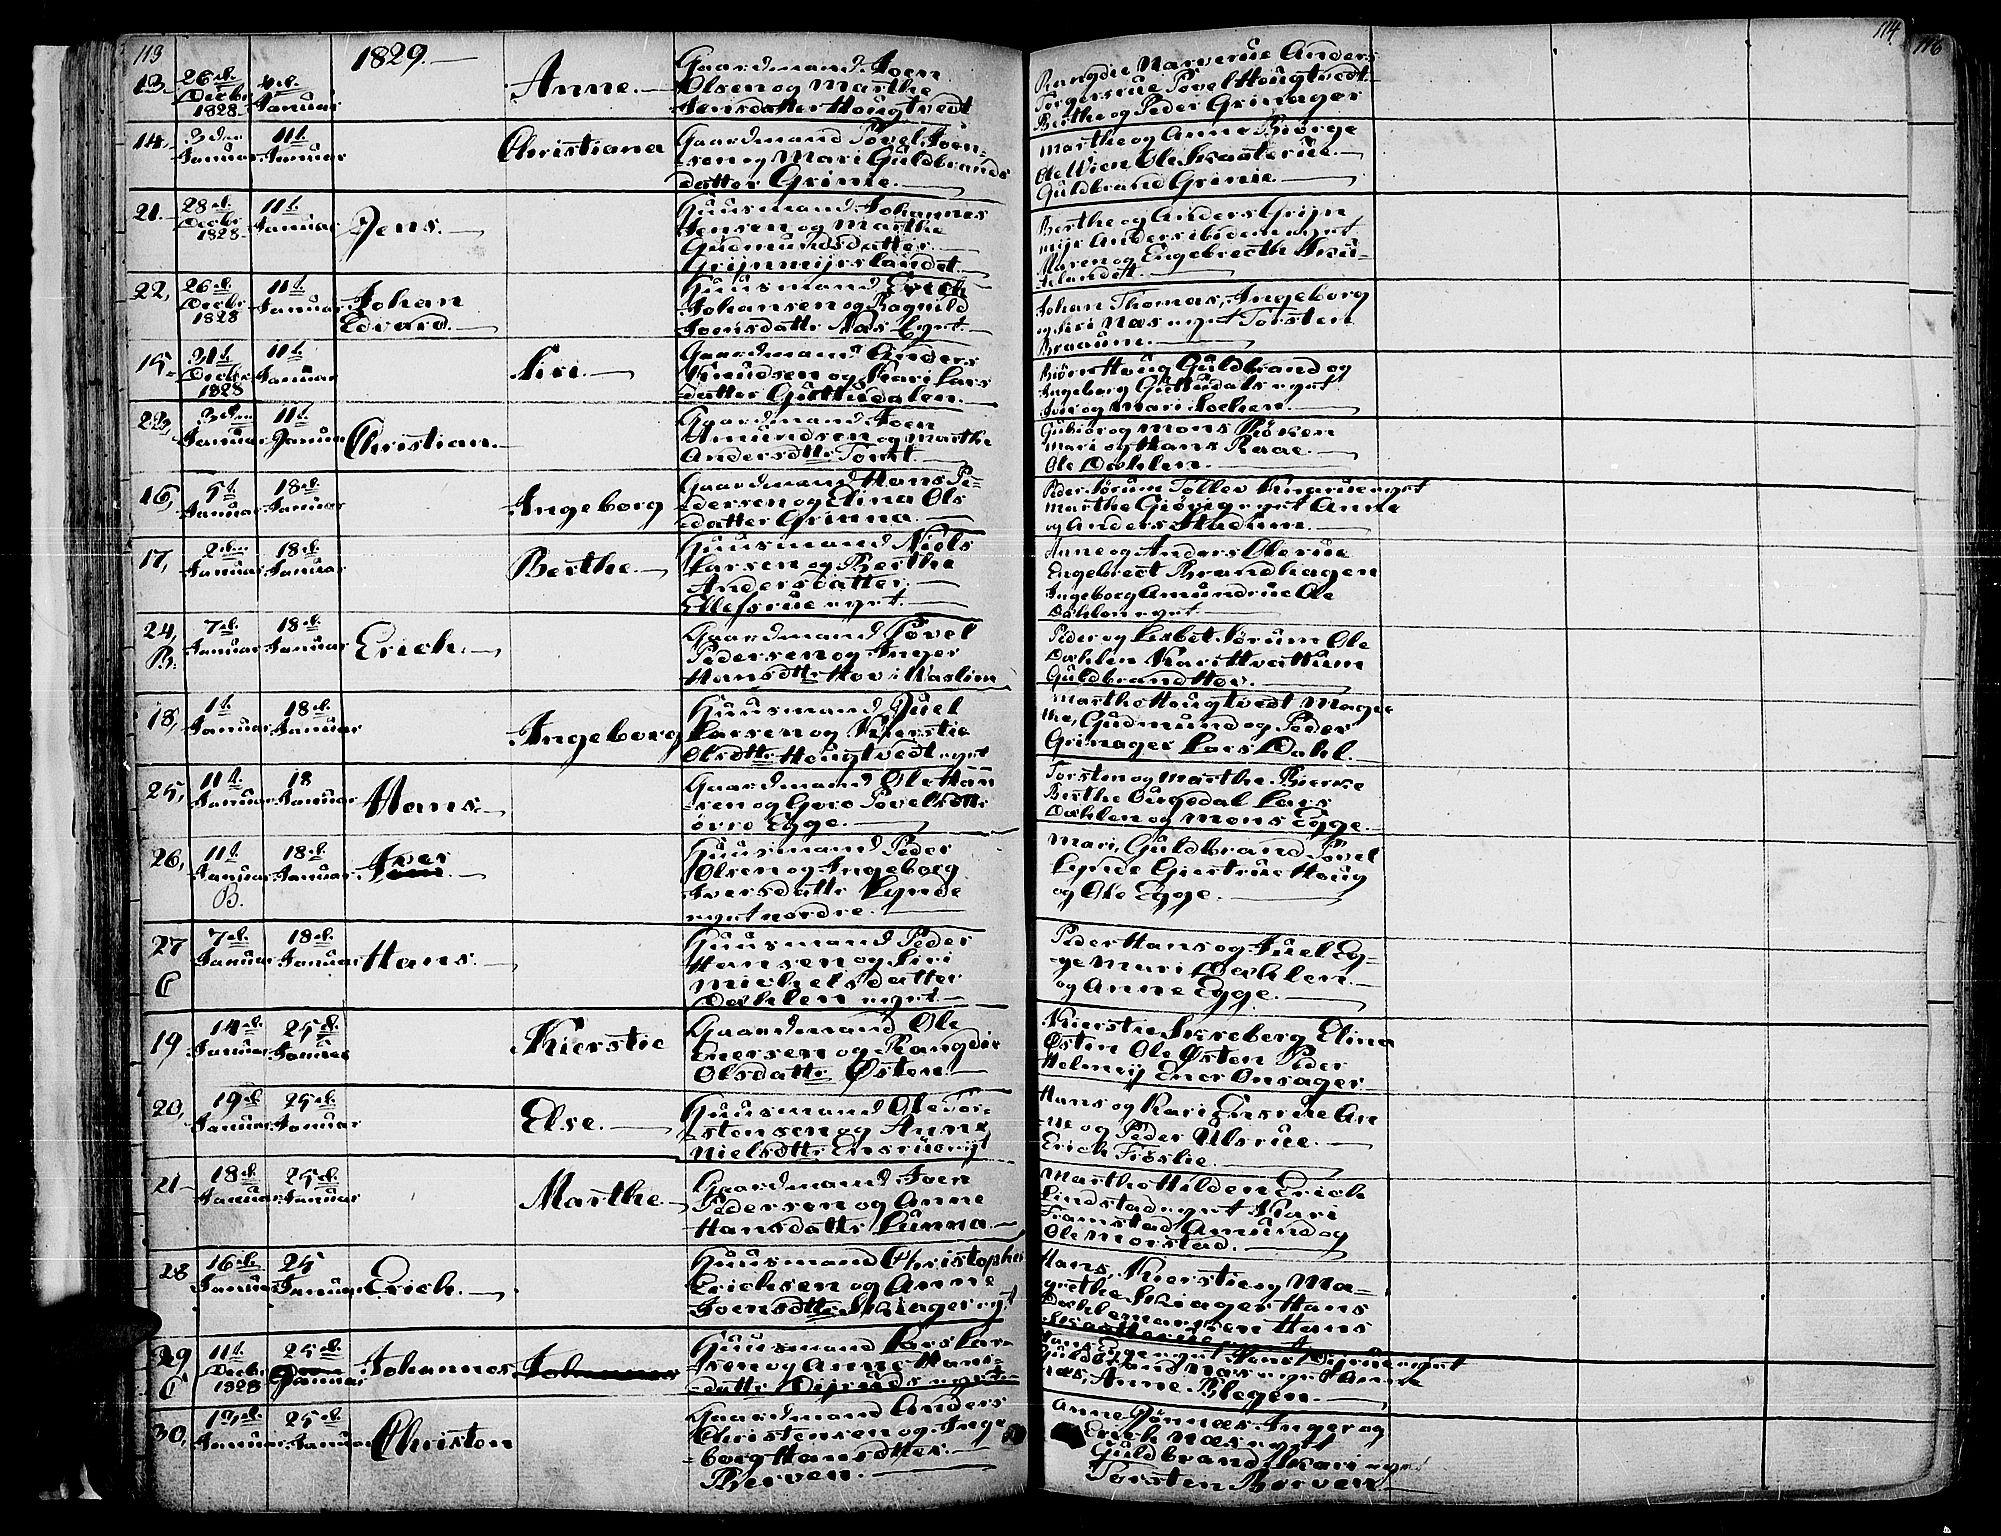 113
1829.
114
116
13. 26d. Decbr. 1828 Januar
Anne.
Gaardmand Joen
Olsen og Marthe
Jensdatter Hougtvedt
Rangdie Narverue Anders
Torgersrue Povel Hougtvedt
Berthe og Peder Grinager
14. 3den Januar 11t. Januar
Christiana
Gaardmand Povel Joen-
sen og Mari Guldbrands
datter Grinie.
Marthe og Anne Biørge
Ole Wien Ole Skaaterue.
Guldbrand Grinie.
21. 28d. Decbr. 1828 11t. Januar
Jens.
Huusmand Johannes
Jensen og Marthe
Gudmundsdatter
Grijnmijrslandet.
Berthe og Anders Grijn
mijr Anders ibidem eyet
Maren og Engebrecth
22, 26d. Decbr. 1828 11t. Januar
Johan
Edvard.
Huusmand Erich
Johansen og Ragnild
Joensdattr Næs Eyet.
Johan Thomas, Ingeborg
og Siri Næs eyet Torsten
Braaum.
15. 31t. Decbr. 1828 11t. Januar
Siri.
Gaardmand Anders
Knudsen og Kari Lars
datter Guttudalen.
Biørn Houg Guldbrand og
Ingeborg Guttudals eyet
Iver og Mari Lochen.
23, 3den Januar 11t. Januar
Christian.
Gaardmand Joen
Amundsen og Marthe
Andersdttr. Torst.
Gubiør og Mons Røken
Mari og Hans Raae
Ole Dæhlen.
16, 5t. Januar 18d. Januar
Ingeborg
Gaardmand Hans Pe-
dersen og Elina Ols
datter Grinna.
Peder Sørum Tollev Knarue eyet
Marthe Giøvig eyet Anne
og Anders Stadum.
17, 2den Januar 18d. Januar
Berthe.
Huusmand Niels
Larsen og Berthe
Andersdatter
Ellefsrue eyet.
Anne og Anders Olerue
Engebrect Brandhagen
Ingeborg Amundrue Ole
Dæhlen eyet.
24, B. 7d. Januar 18d. Januar
Erich.
Gaardmand Povel
Pedersen og Inger
Hansdttr Hov i Væslien
Peder og Lisbet Sørum Ole
Dæhlen Kari Hvattum
Guldbrand Hov.
18, 1t. Januar 18d. Januar
Ingeborg
Huusmand Juel
Larsen og Kierstie
Olsdttr. Hougtvedt eyet
Marthe Hougtvedt Magre
the, Gudmund og Peder
Grinager Lars Dahl.
25, 11t. Januar 18 Januar
Hans.
Gaardmand Ole Han
sen og Goro Povelsdttr
øvre Egge.
Torsten og Marthe Bierke
Berthe Ougedal Lars
Dæhlen og Mons Egge.
26, 11t. Januar B. 18d. Januar
Iver
Huusmand Peder
Olsen og Ingeborg
Iversdattr Lynde
eyet nordre.
Mari, Guldbrand Povel
Lynde Giestrue Houg
og Ole Egge.
27 C 7d. Januar 18d. Januar
Hans.
Huusmand Peder
Hansen og Siri
Michelsdatter
Dæhlen eyet.
Peder Hans og Juel Eg-
ge Mari Dæhlen.
og Anne Egge.
19 14d. Januar 25d. Januar
Kierstie
Gaardmand Ole
Enersen og Rangdie
Olsdattr. Østen.
Kierstie Skreberg Elina
Østen Ole Østen Peder
Helmeij Ener Onsager
20, 19d. Januar 25d. Januar
Else.
Huusmand Ole Tor-
stensen og Anne
Nielsdttr. Ensrue eyt
Hans og Kari Ensrue An
ne og Peder Ulsrue.
Erich Frøslie.
21 18d. Januar 25d. Januar
Marthe.
Gaardmand Joen
Pedersen og Anne
Hansdattr. Lunna.
Marthe Hilden Erich
Lindstad eyet Kari
Framstad Amund og
Ole Morstad.
28 16d. Januar 25 Januar
Erich.
Huusmand Christopher
Erichsen og Anne
Joensdttr. Skiager eyt
Hans, Kierstie og Ma-
grethe Skiager Hans
Dæhlemarken Hans
29 C 11t. Decbr. 1828 25d. Januar
Johannes
Johannes
Huusmand Lars Lar
sen og Anne Hans-
dattr
Guldbrand Næs eyet Anne
Næs, Anne Blegen.
30, Januar 25d. Januar
Christen
Gaardmand Anders
Christensen og Inge
borg Hansdtter.
Berven.
Anne Inger og
Erich Næs eyet
Guldbrand Skari eyet
Torsten Berven